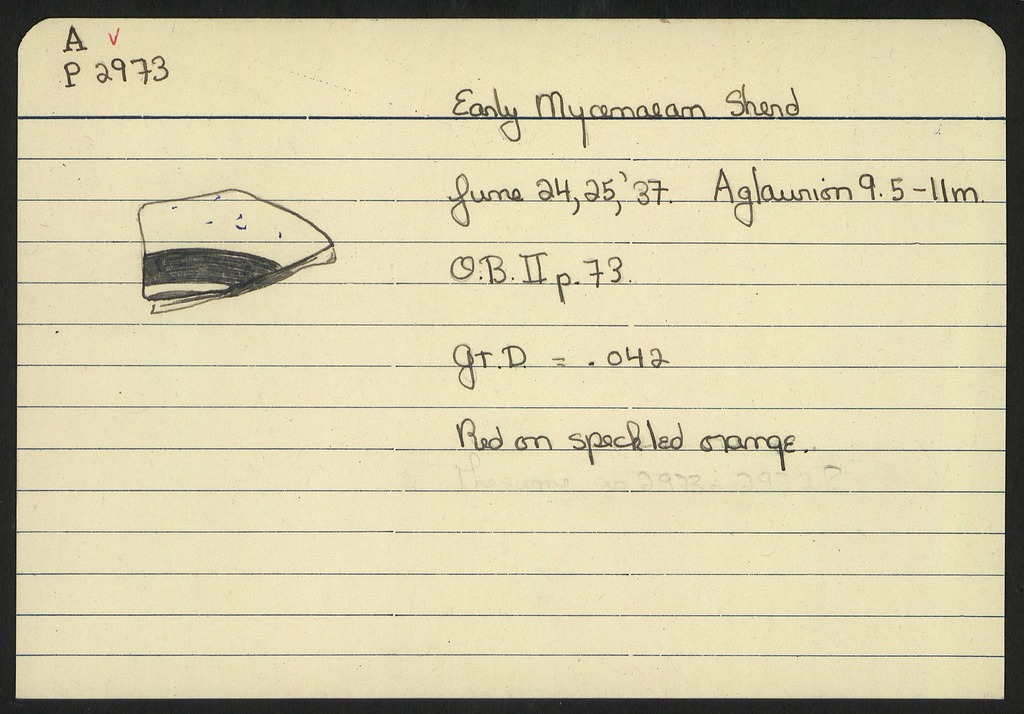 A v
P 2973
Early Mycenaean Sherd
June 24, 25, '37. Aglaurion 9.5-11m.
O.B. II p. 73.
Gr. D. = .042
Red on speckled orange.